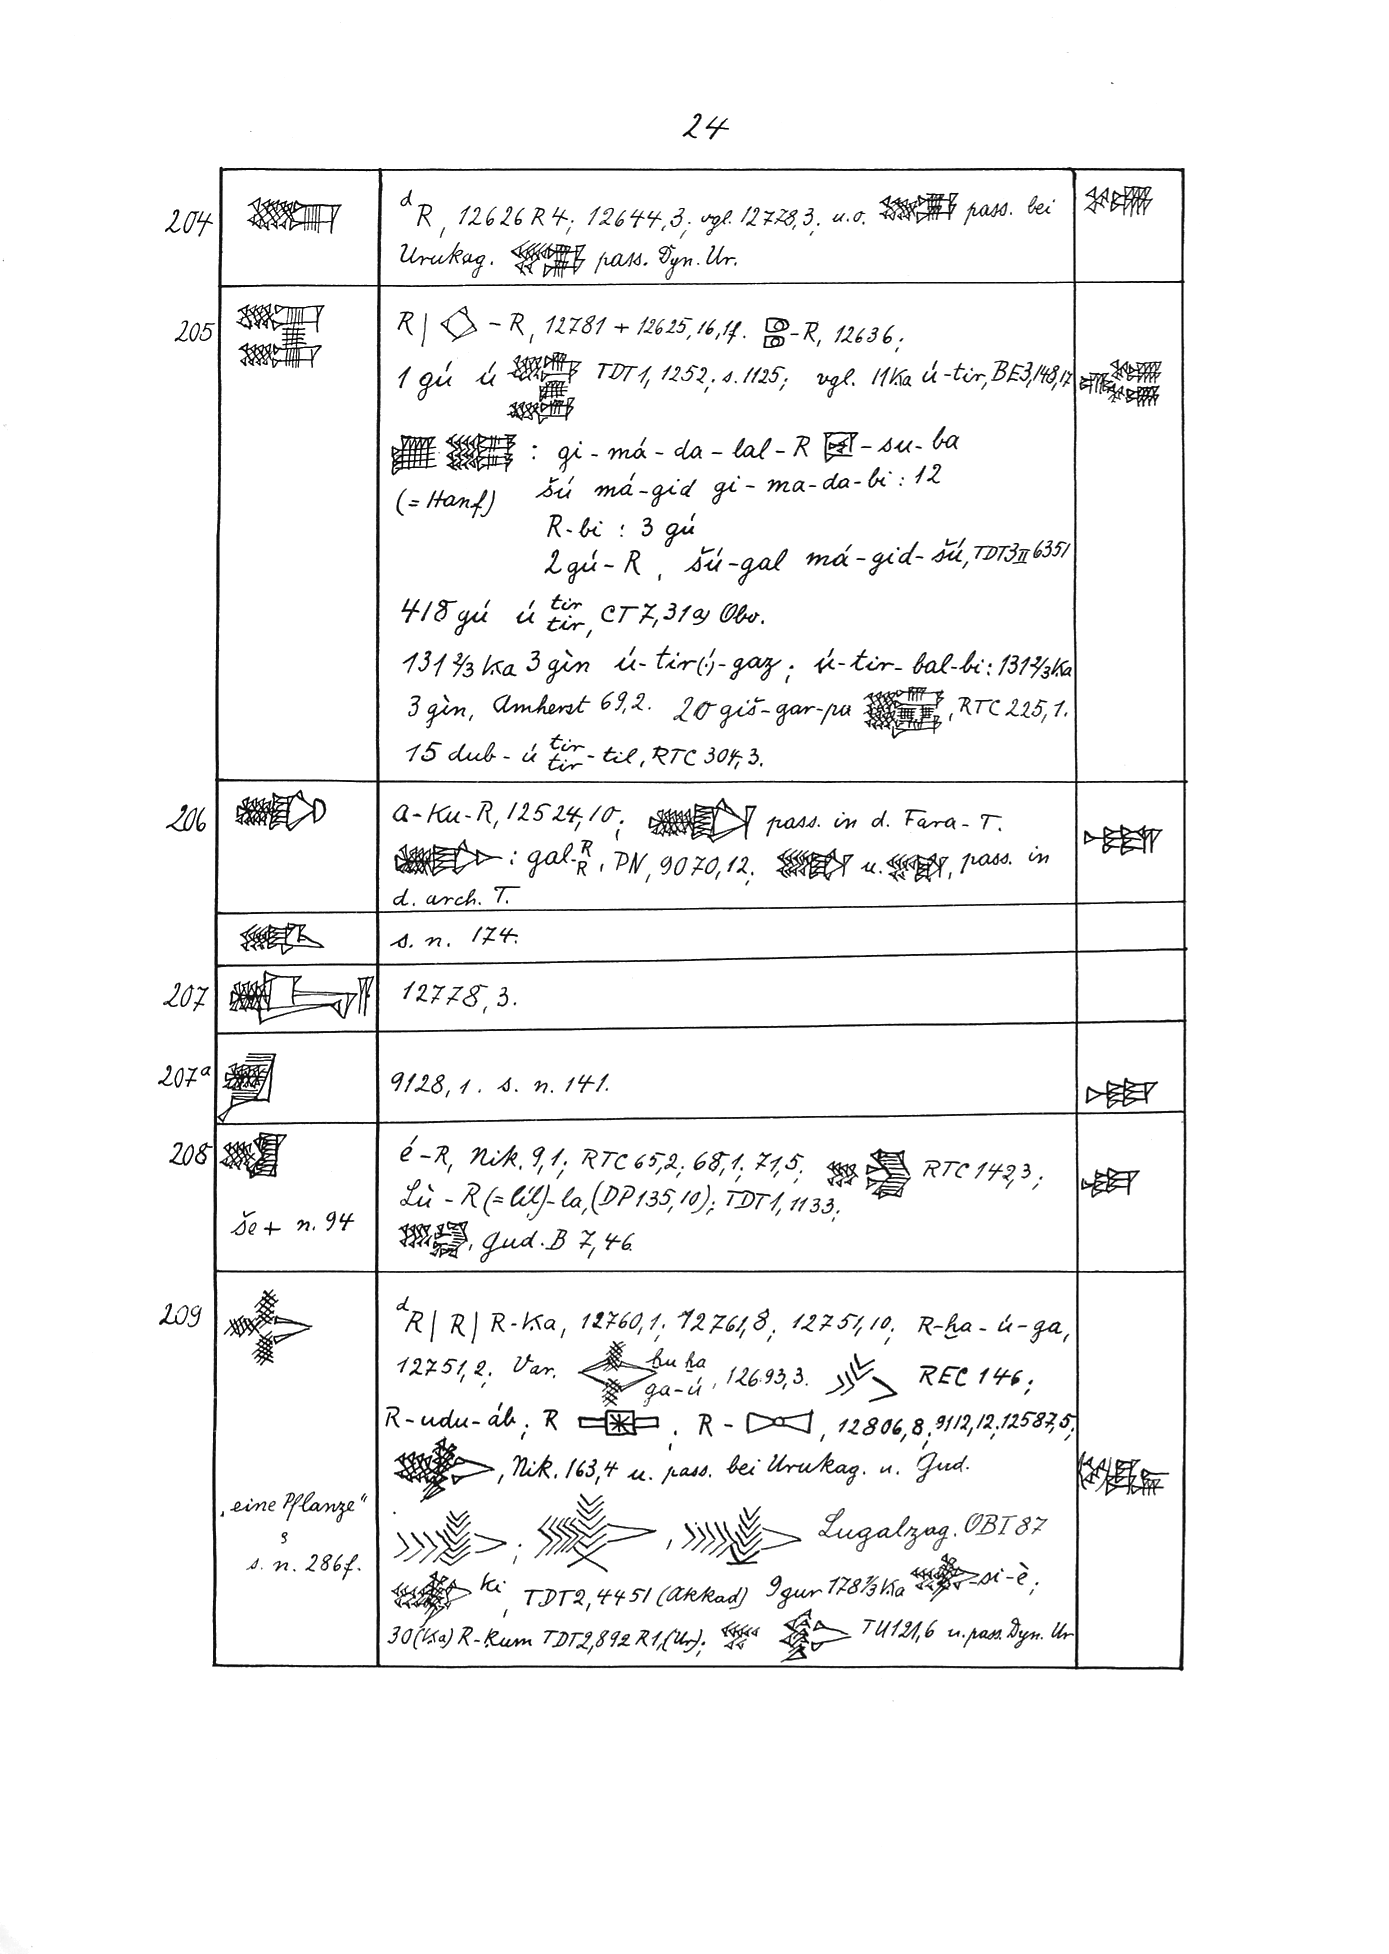 24
204
ᵈR, 12626 R 4; 12644,3; vgl. 12778,3; u.o. pass. bei
Urukag. pass. Dyn. Ur.
205
R | - R, 12781 + 12625,16,17. -R, 12636;
1 gú ú TDT1, 1252; s. 1125; vgl. 11 Ka ú-tir, BE3,148,17
: gi-má-da-lal-R -su-ba
(= Hanf) šú má-gid gi-ma-da-bi : 12
R-bi : 3 gú
2 gú-R, šú-gal má-gid-šú, TDT3II 6351
418 gú ú tir tir, CT 7, 31a Obv.
131 2/3 Ka 3 gìn ú-tir(!)-gaz; ú-tir-bal-bi: 131 2/3 Ka
3 gìn, Amherst 69,2. 20 giš-gar-pa , RTC 225,1.
15 dub-ú tir tir-til, RTC 304,3.
206
a-Ku-R, 12524,10; pass. in d. Fara-T.
: gal-R R, PN, 9070,12; u. , pass. in
d. arch. T.
s. n. 174.
207
12778, 3.
207a
9128, 1. s. n. 141.
208
é-R, Nik. 9,1; RTC 65,2; 68,1; 71,5; RTC 142,3;
Lù-R (= líl)-la, (DP 135,10); TDT1, 1133;
še + n. 94
, Gud. B 7,46.
209
ᵈR | R | R-Ka, 12760,1; 12761,8; 12751,10; R-ḫa-ú-ga,
12751,2; Var. ḫu ḫa ga-ú, 12693,3. REC 146;
R-udu-áb; R , R - , 12806,8; 9112,12; 12587,5;
, Nik. 163,4 u. pass. bei Urukag. u. Gud.
„eine Pflanze"
; , Lugalzag. OBI 87
s. n. 286f.
ki, TDT2, 4451 (Akkad) 9 gur 178 1/3 Ka -si-è;
30 (Ka) R-kum TDT2, 892 R1, (Ur); TU 121,6 u. pass. Dyn. Ur